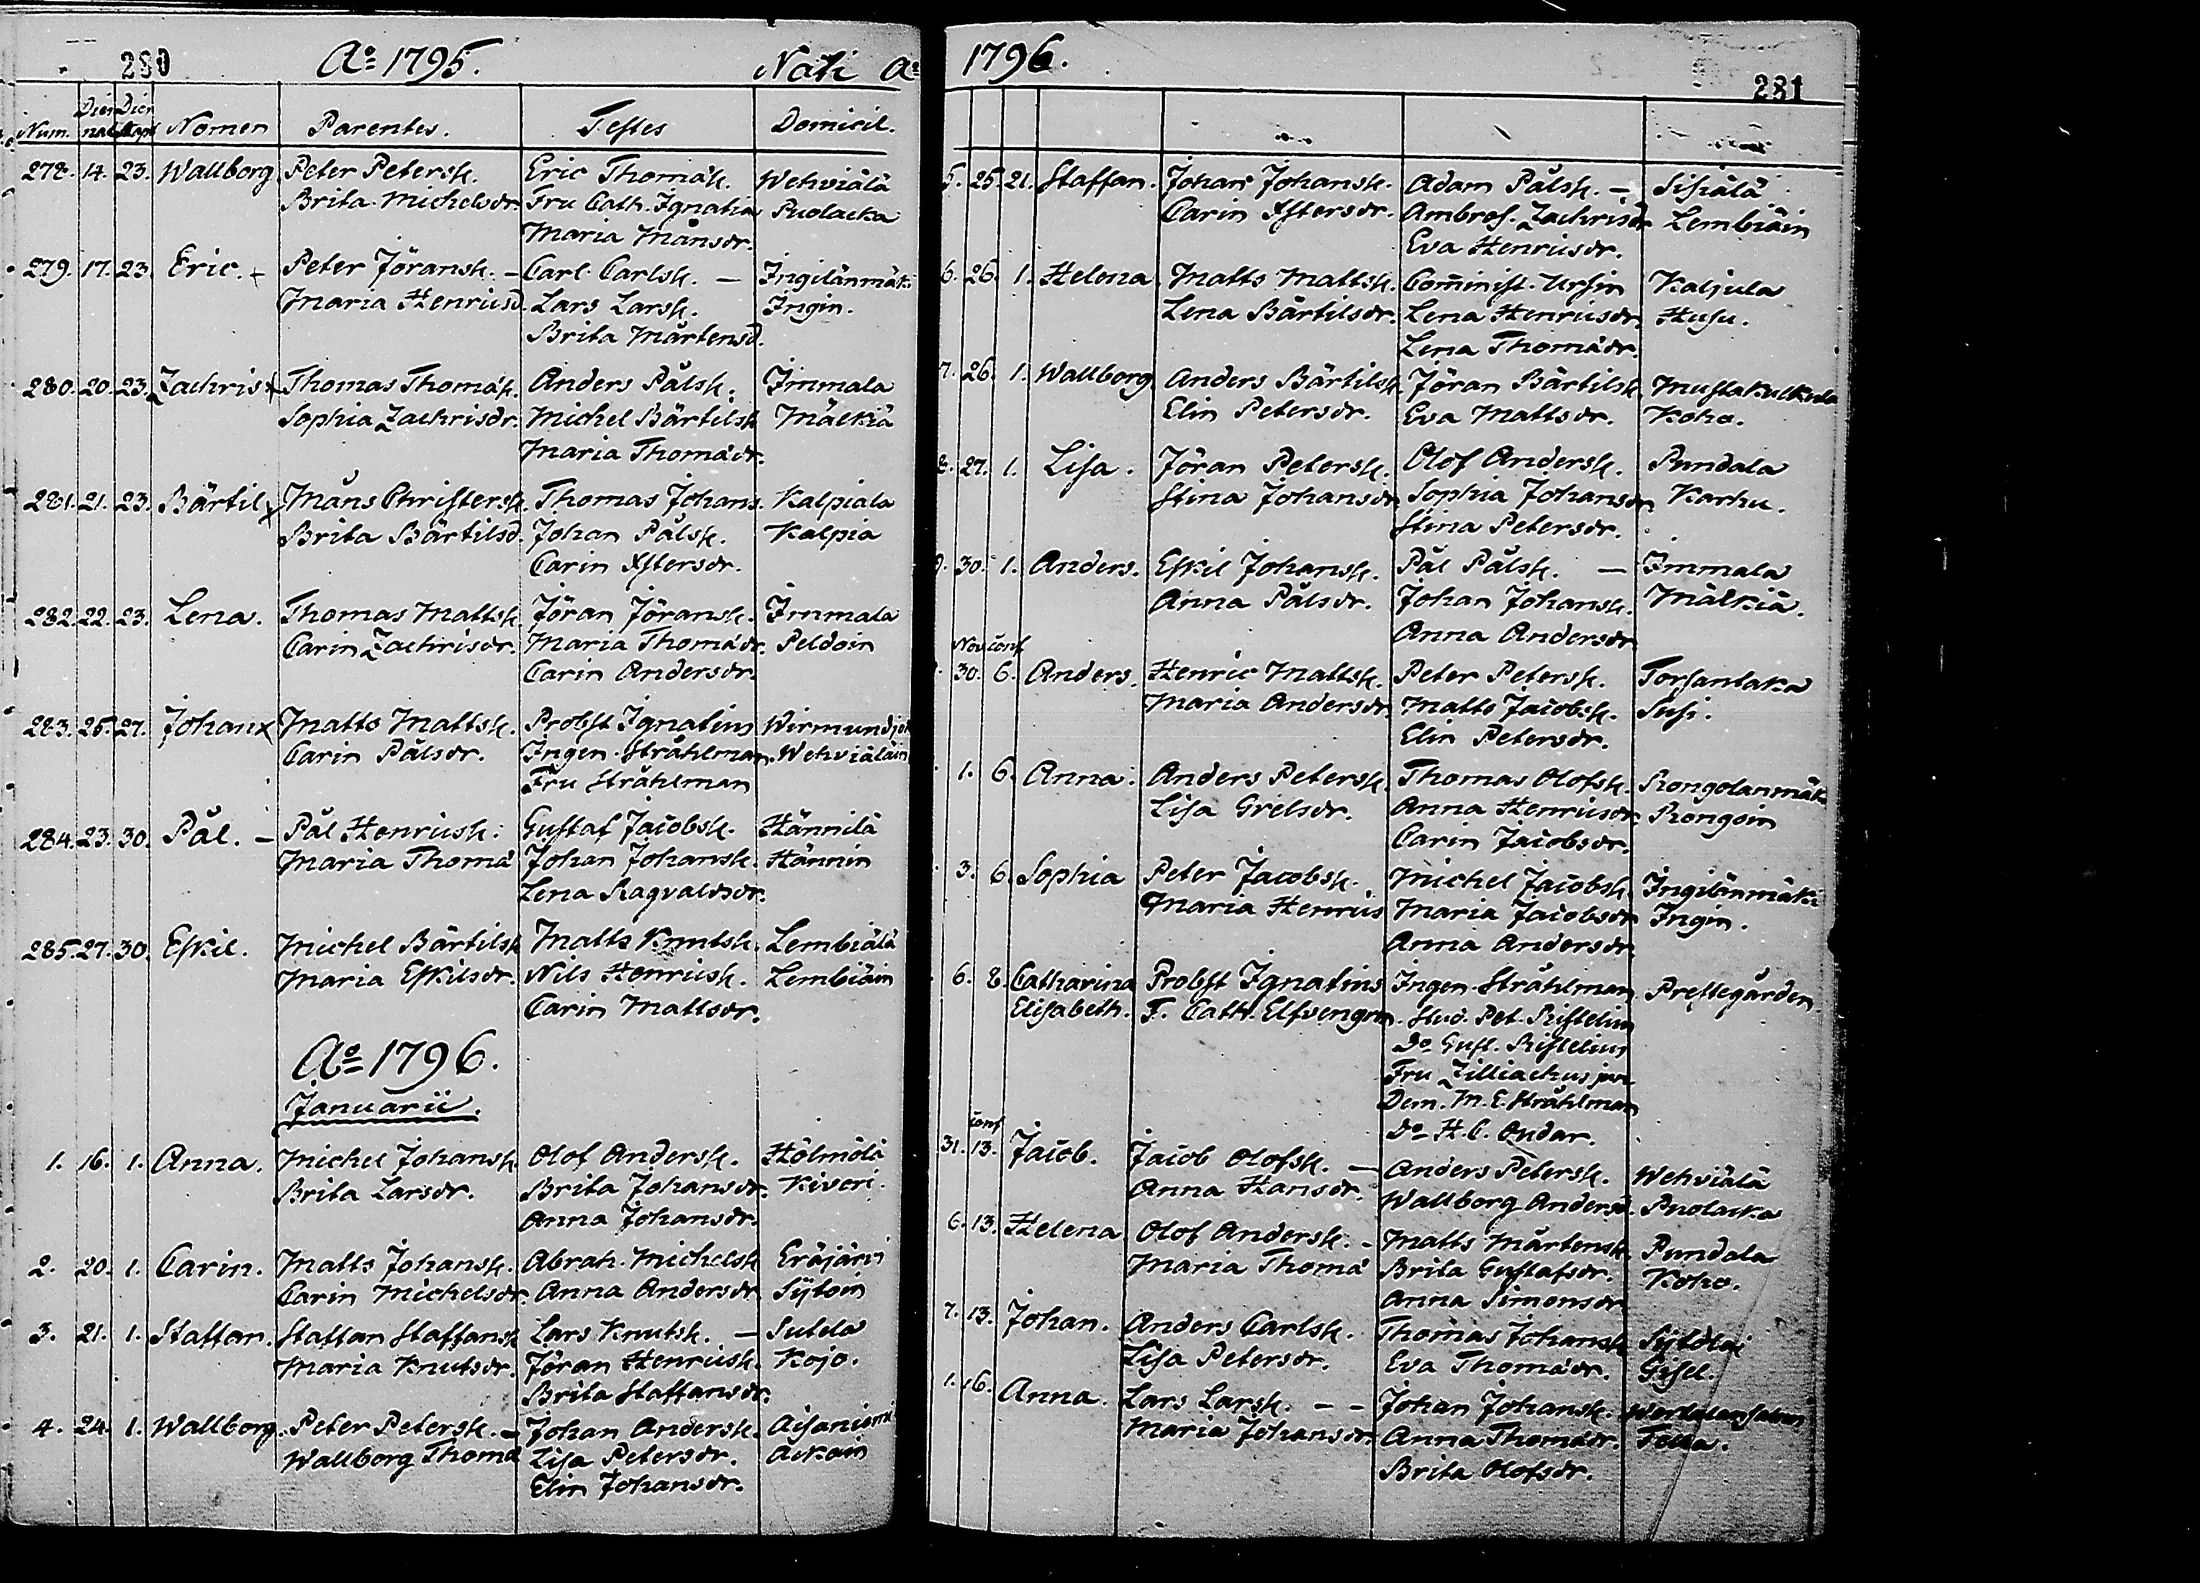 280 Aº 1795. Nati Aº
Num. Dies nat. Dies bapt. Nomen Parentes. Testes Domicil.
278. 14. 23. Wallborg Peter Petersk. Eric Thomæsk. Wehviälä
Brita Michelsdr. Fru Cath. Ignatia Puolacka
Maria Månsdr.
279. 17. 23. Eric. + Peter Jöransk. – Carl Carlsk. – Ingilänmäki
Maria Henricsd. Lars Larsk. Ingin.
Brita Mårtensd.
280. 20. 23. Zachris x Thomas Thomæsk. Anders Pålsk. Immala
Sophia Zachrisdr. Michel Bärtilsk Mälkiä
Maria Thomædr.
281. 21. 23. Bärtil x Måns Christersk. Thomas Johans. Kalpiala
Brita Bärtilsd. Johan Pålsk. Kalpia
Carin Ystersdr.
282. 22. 23. Lena. Thomas Mattsk. Jöran Jöransk. Immala
Carin Zachrisdr. Maria Thomædr. Peldoin
Carin Andersdr.
283. 25. 27. Johan x Matts Mattsk. Probst Ignatius
Carin Pålsdr. Ingen. Stråhlman. Wehviäläin
Fru Stråhlman
284. 23. 30. Pål. – Pål Henricsk. Gustaf Jacobsk. Hännilä
Maria Thomæ Johan Johansk. Hännin
Lena Ragvaldsdr.
285. 27. 30. Eskil. Michel Bärtilsk Matts Knutsk. Lembiälä
Maria Eskilsdr. Nils Henricsk. Lembiäin
Carin Mattsdr.
Aº 1796.
Januarii.
1. 16. 1. Anna. Michel Johansk. Olof Andersk. Hölmölä
Brita Larsdr. Brita Johansdr. Kiveri.
Anna Johansdr.
2. 20. 1. Carin. Matts Johansk. Abrah. Michelsk Eräjärvi
Carin Michelsdr. Anna Andersdr. Sytoin
3. 21. 1. Staffan. Staffan Staffansk Lars Knutsk. – Sutela
Maria Knutsdr. Jöran Henricsk. Kojo.
Brita Staffansdr.
4. 24. 1. Wallborg. Peter Petersk. – Johan Andersk. Aisaniemi
Wallborg Thomæ Lisa Petersdr. Ackoin
Elin Johansdr.
1796. 281
5. 25. 21. Staffan. Johan Johansk. Adam Pålsk. – Sihälä
Carin Ystersdr. Ambros. Zachrisdr Lembiäin
Eva Henricsdr.
6. 26. 1. Helena Matts Mattsk. Cominist. Ursin Kaljula
Lena Bärtilsdr. Lena Henricsdr. Husu.
Lena Thomædr.
7. 26. 1. Wallborg Anders Bärtilsk Jöran Bärtilsk.
Elin Petersdr. Eva Mattsdr. Koho.
8. 27. 1. Lisa. Jöran Petersk. Olof Andersk. Pundala
Stina Johansdr Sophia Johansdr Karhu.
Stina Petersdr.
9. 30. 1. Anders. Eskil Johansk. Pål Pålsk. – Immala
Anna Pålsdr. Johan Johansk. Mälkiä.
Anna Andersdr
Nov. conf
30. 6. Anders. Henric Mattsk. Peter Petersk. Torsantaka
Maria Andersdr. Matts Jacobsk. Susi.
Elin Petersdr.
1. 6. Anna. Anders Petersk. Thomas Olofsk. Rongolanmäk
Lisa Grelsdr. Anna Henricsdr. Rongoin
Carin Jacobsdr.
3. 6. Sophia Peter Jacobsk. Michel Jacobsk. Ingilänmäki
Maria Henrics Maria Jacobsdr Ingin.
Anna Andersdr.
6. 8. Catharina Probst Ignatius Ingen. Stråhlman Prestegården
Elisabeth. F. Cath. Elfvengren. Stud. Pet. Ristelius
Dº Gust. Ristelius
Fru Zilliackus
Dem. M. E. Stråhlman
Dº H. C. Ondar.
conf
31. 13. Jacob. Jacob Olofsk. – Anders Petersk. Wehviälä
Anna Hansdr. Wallborg Anders. Puolacka
6. 13. Helena Olof Andersk. – Matts Mårtensk. Pundala
Maria Thomæ Brita Gustafsdr. Koho.
Anna Simonsdr
7. 13. Johan. Anders Carlsk. Thomas Johansk
Lisa Petersdr. Eva Thomædr. Gisel.
1. 16. Anna. Lars Larsk. – – Johan Johansk.
Maria Johansdr. Anna Thomædr.
Brita Olofsdr.